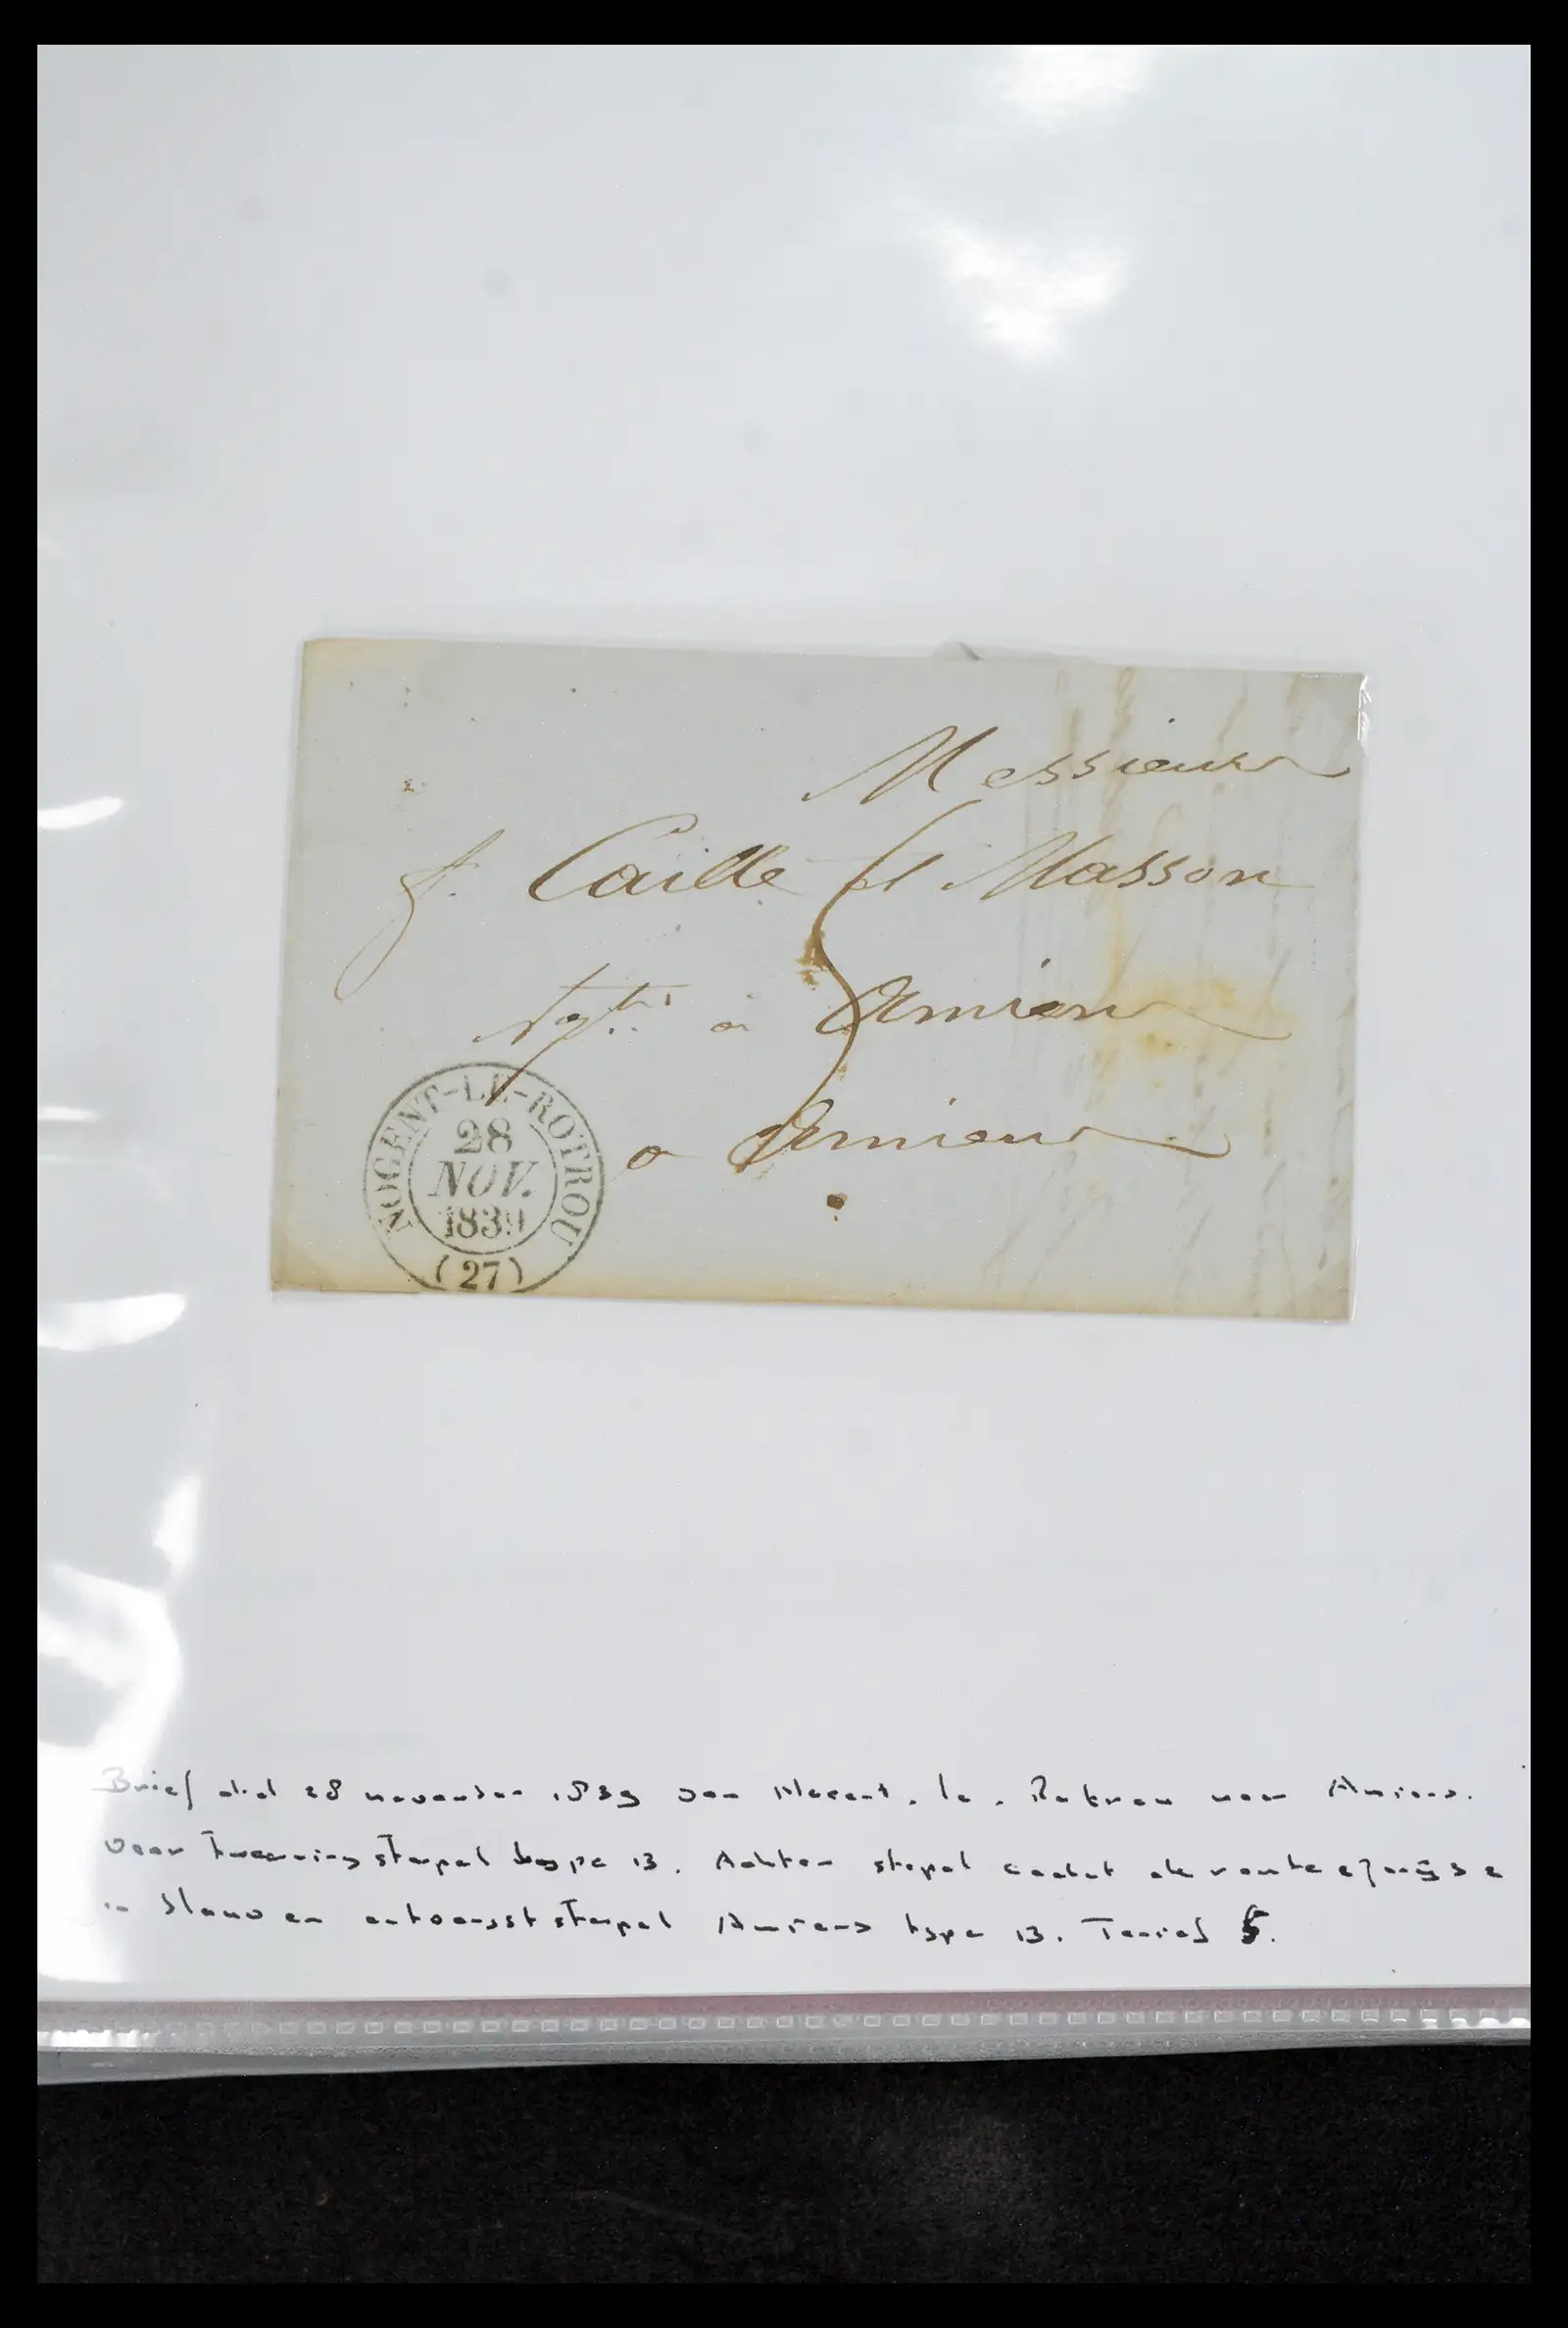 Messieurs
f. Caille et Masson
Ngts à Amiens
5
NOGENT-LE-ROTROU
28
NOV.
1839
(27)
a Amiens
Brief d.d 28 november 1839 van Nogent-le-Rotrou naar Amiens.
Voor stempel type 13. Achter stempel cachet de route
in blauw en aankomst stempel Amiens type 13. Tarief 5.